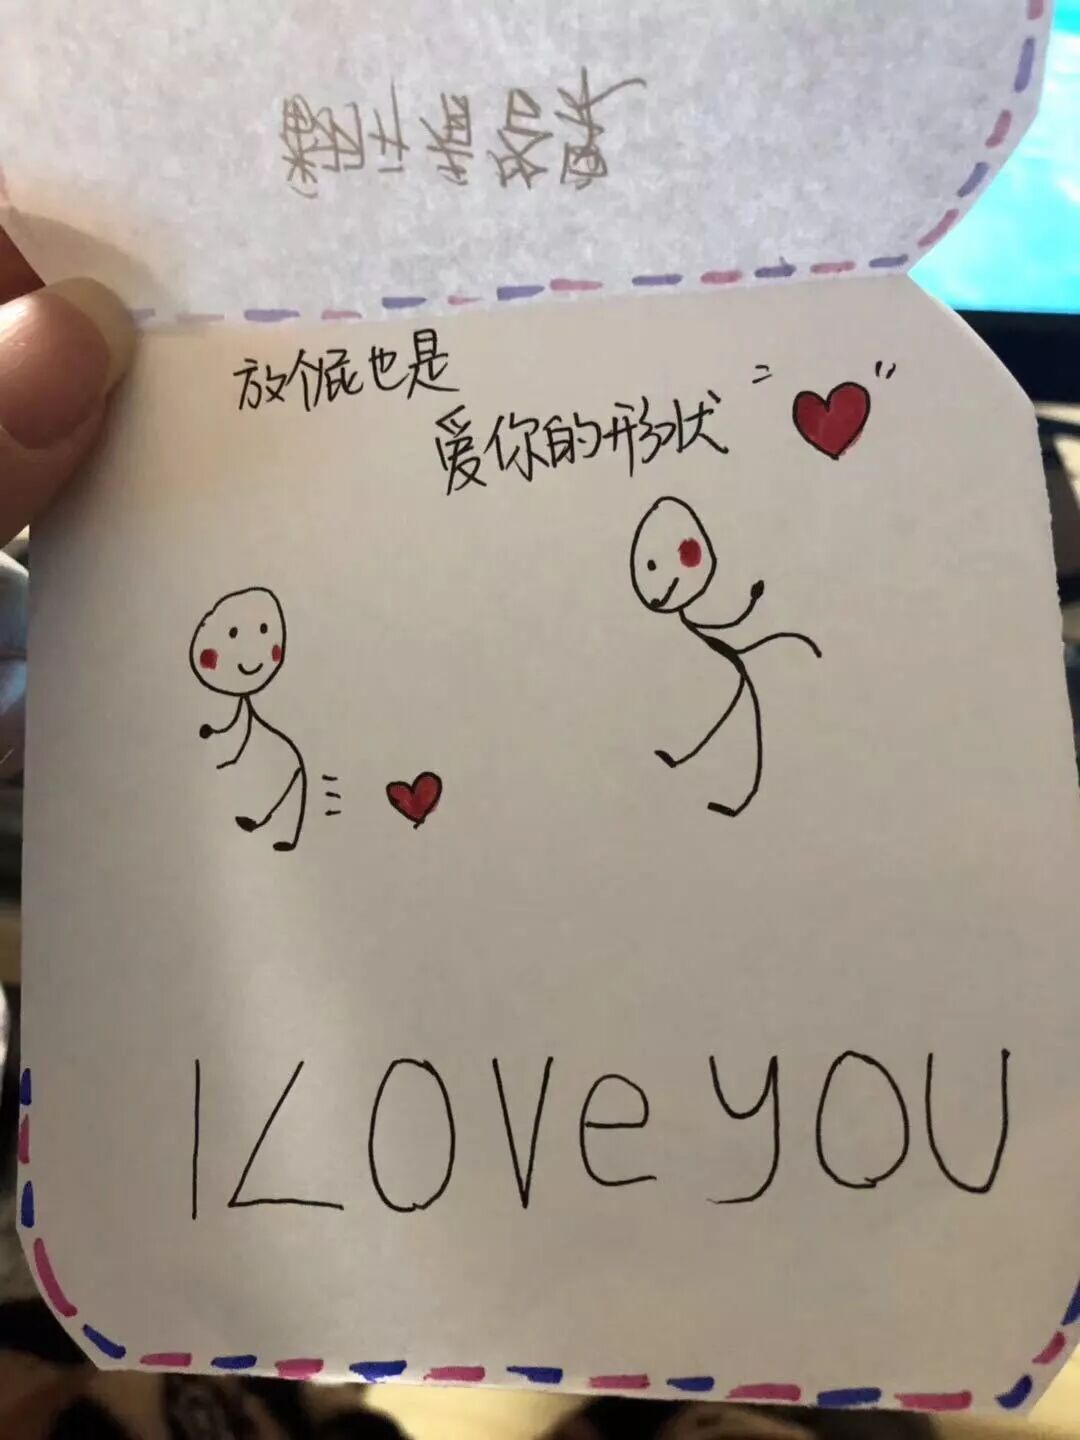 放个屁也是
爱你的形状"❤"
I Love you